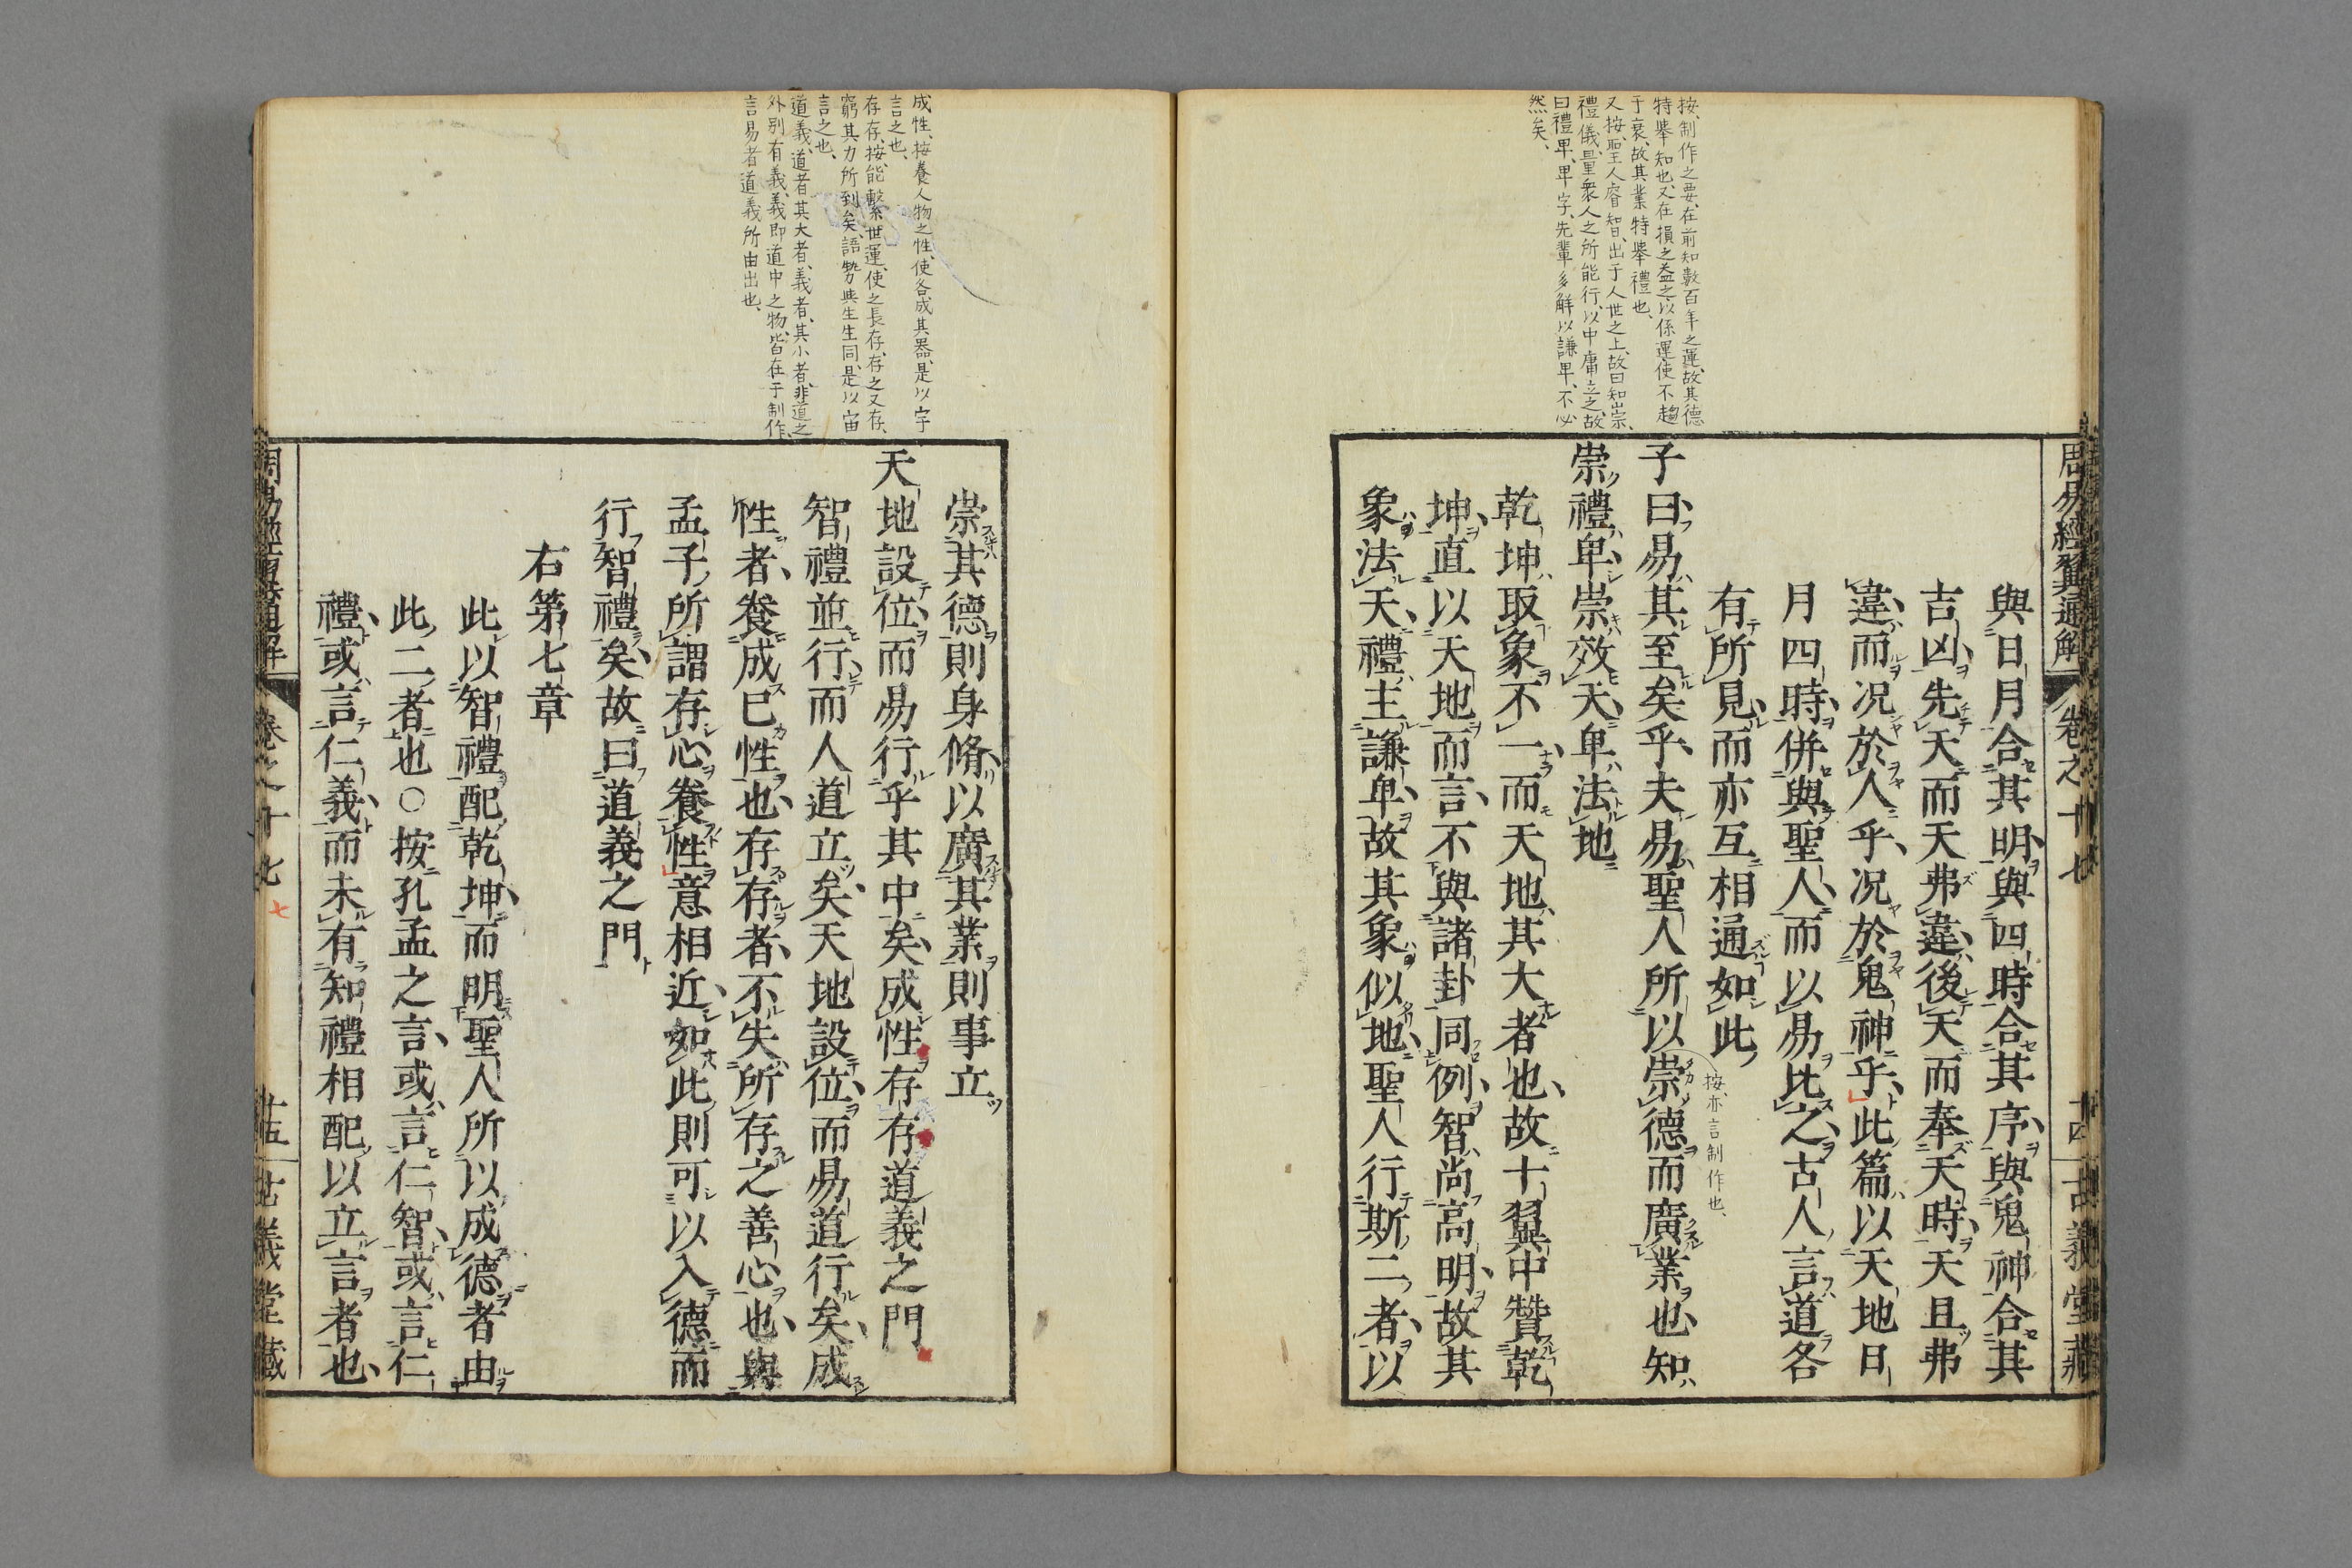 按、制作之要、在前知數百年之運、故其德
特擧知也、又在損之益之以係運使不趨
于衰、故其業特擧禮也、
又按、聖人睿智、出于人世之上、故曰知崇、
禮儀、量衆人之所能行、以中庸立之、故
曰禮卑、卑字、先輩多解以謙卑、不必
然矣、
周易經翼通解 卷之十七 十四 古義堂藏
與日月合其明、與四時合其序、與鬼神合其
吉凶、先天而天弗違、後天而奉天時、天且弗
違、而况於人乎、况於鬼神乎、此篇以天地日
月四時、併與聖人、而以易比之、古人言道各
有所見、而亦互相通如此、
子曰、易其至矣乎、夫易、聖人所以崇德而廣業也、知
按、亦言制作也、
崇禮卑、崇效天、卑法地
乾坤取象不一、而天地其大者也、故十翼中贊乾
坤、直以天地而言、不與諸卦同例、智尚高明、故其
象法天、禮主謙卑、故其象似地、聖人行斯二者、以
成性、按養人物之性、使各成其器、是以宇
言之也、
存存、按、能繫世運、使之長存、存之又存、
窮其力所到矣、語勢與生生同、是以宙
言之也、
道義、道者其大者、義者、其小者、非道之
外別有義、義即道中之物、皆在于制作、
言易者道義所由出也、
崇其德則身脩、以廣其業則事立
天地設位、而易行乎其中矣、成性存存、道義之門
智禮並行而人道立矣、天地設位、而易道行矣、成
性者、養成已性也、存存者、不失所存之善心也、與
孟子所謂存心養性意相近、如此則可以入德而
行智禮矣、故曰道義之門
右第七章
此以智禮配乾坤、而明聖人所以成德者由
此二者也○按孔孟之言、或言仁智、或言仁
禮、或言仁義、而未有知禮相配以立言者也、
周易經翼通解 卷之十七 七 十五 古義堂藏